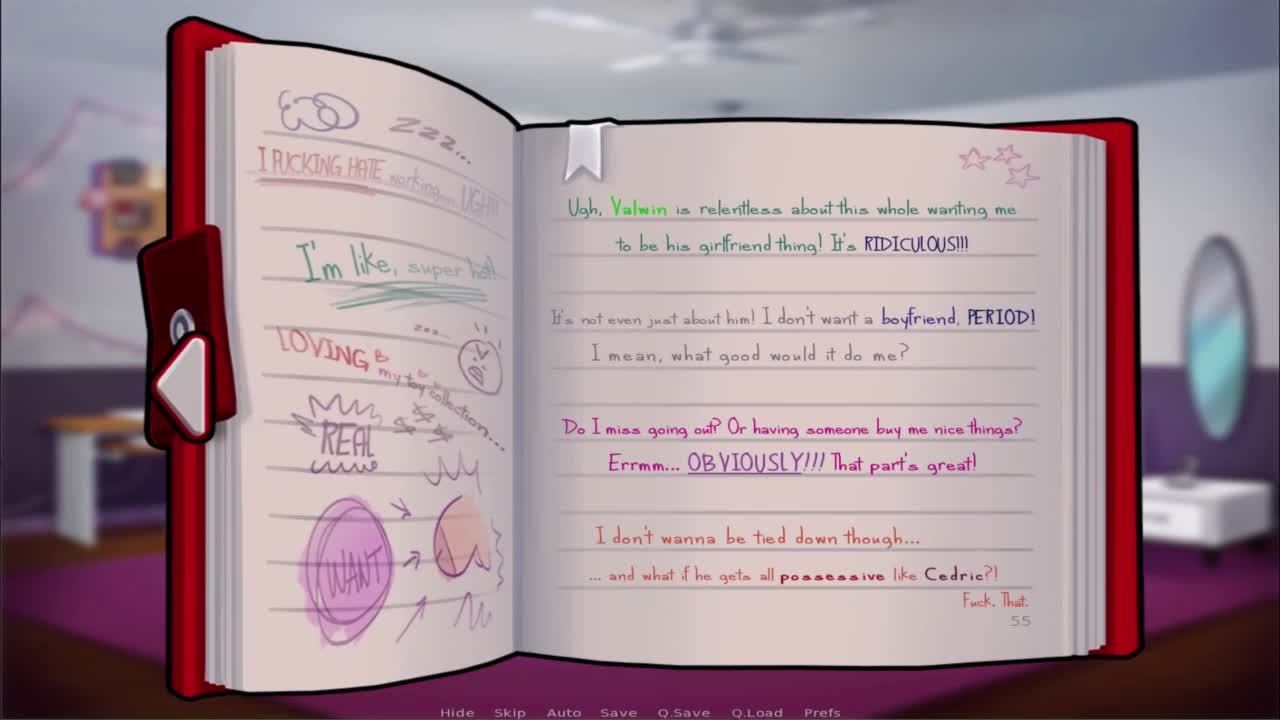 zzz...
I FUCKING HATE working.... UGH!!
I'm like, super hot!
zzz...
LOVING my toy collection...
REAL
WANT
Ugh, Valwin is relentless about this whole wanting me
to be his girlfriend thing! It's RIDICULOUS!!!
It's not even just about him! I don't want a boyfriend, PERIOD!
I mean, what good would it do me?
Do I miss going out? Or having someone buy me nice things?
Errmm... OBVIOUSLY!!! That part's great!
I don't wanna be tied down though...
... and what if he gets all possessive like Cedric?!
Fuck. That.
55
Hide Skip Auto Save Q.Save Q.Load Prefs